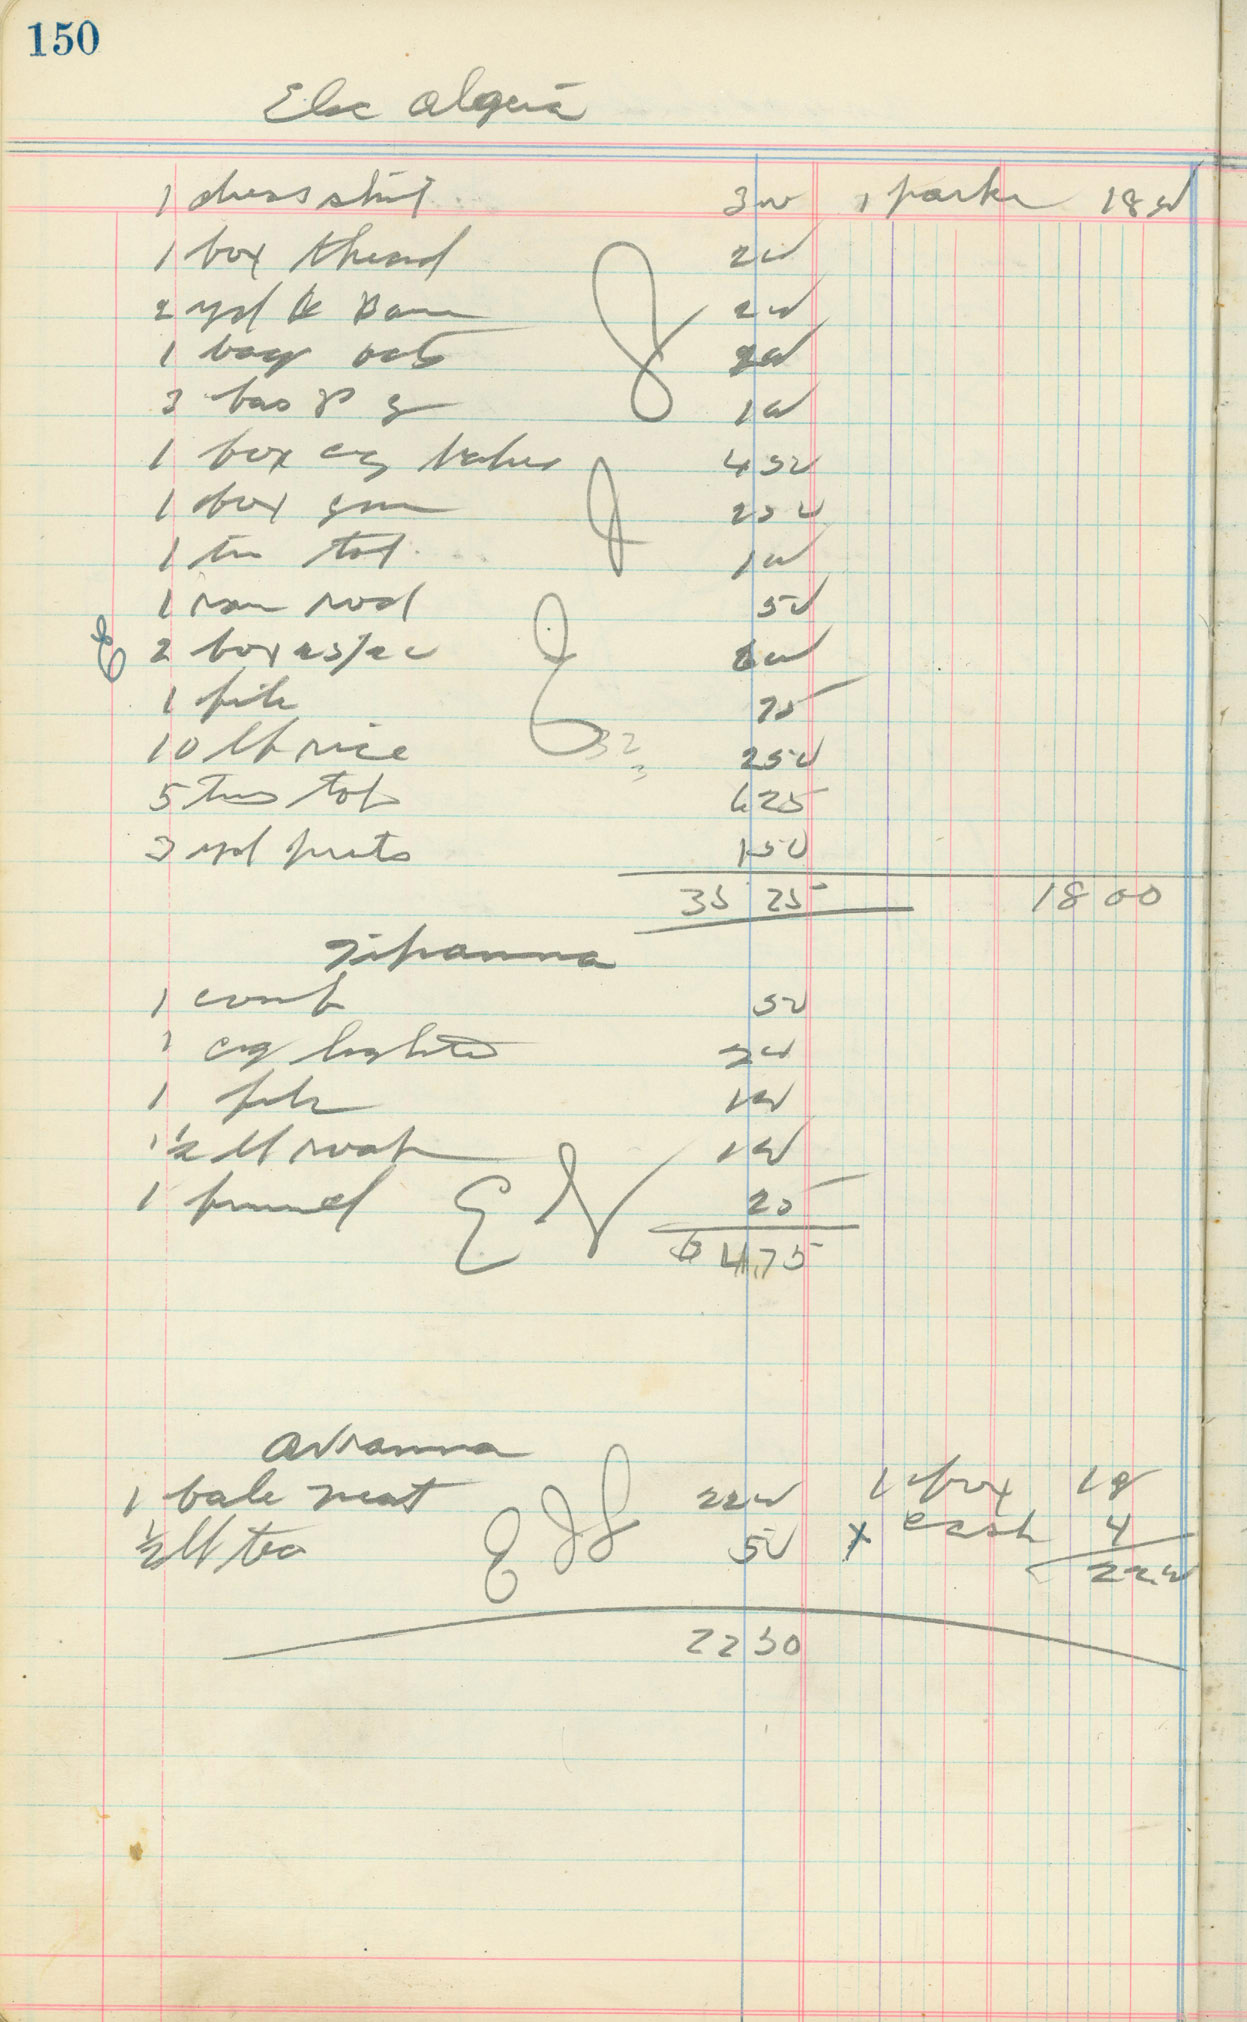 150
Elsc Algeria
1 dress shirt 3 00 1 parka 18 00
1 box thread 2 00
2 yd 2 00
1 bag oats 2 00
3 1 00
1 box cig tubes 4 50
1 box gum 2 50
1 tin tob 1 00
1 ram rod 50
2 box 25/20 6 00
1 file 75
10 lb rice 2 50
5 tins tob 6 25
3 yd prints 1 50
35 25 18 00
1 comb 50
1 cig lighter 2 00
1 file 1 00
1 1/2 lb 1 00
1 funnel 25
4.75
Avranna
1 bale meat 22 00 1 box 18
1/2 lb tea 50 x cash 4
22 00
22 50